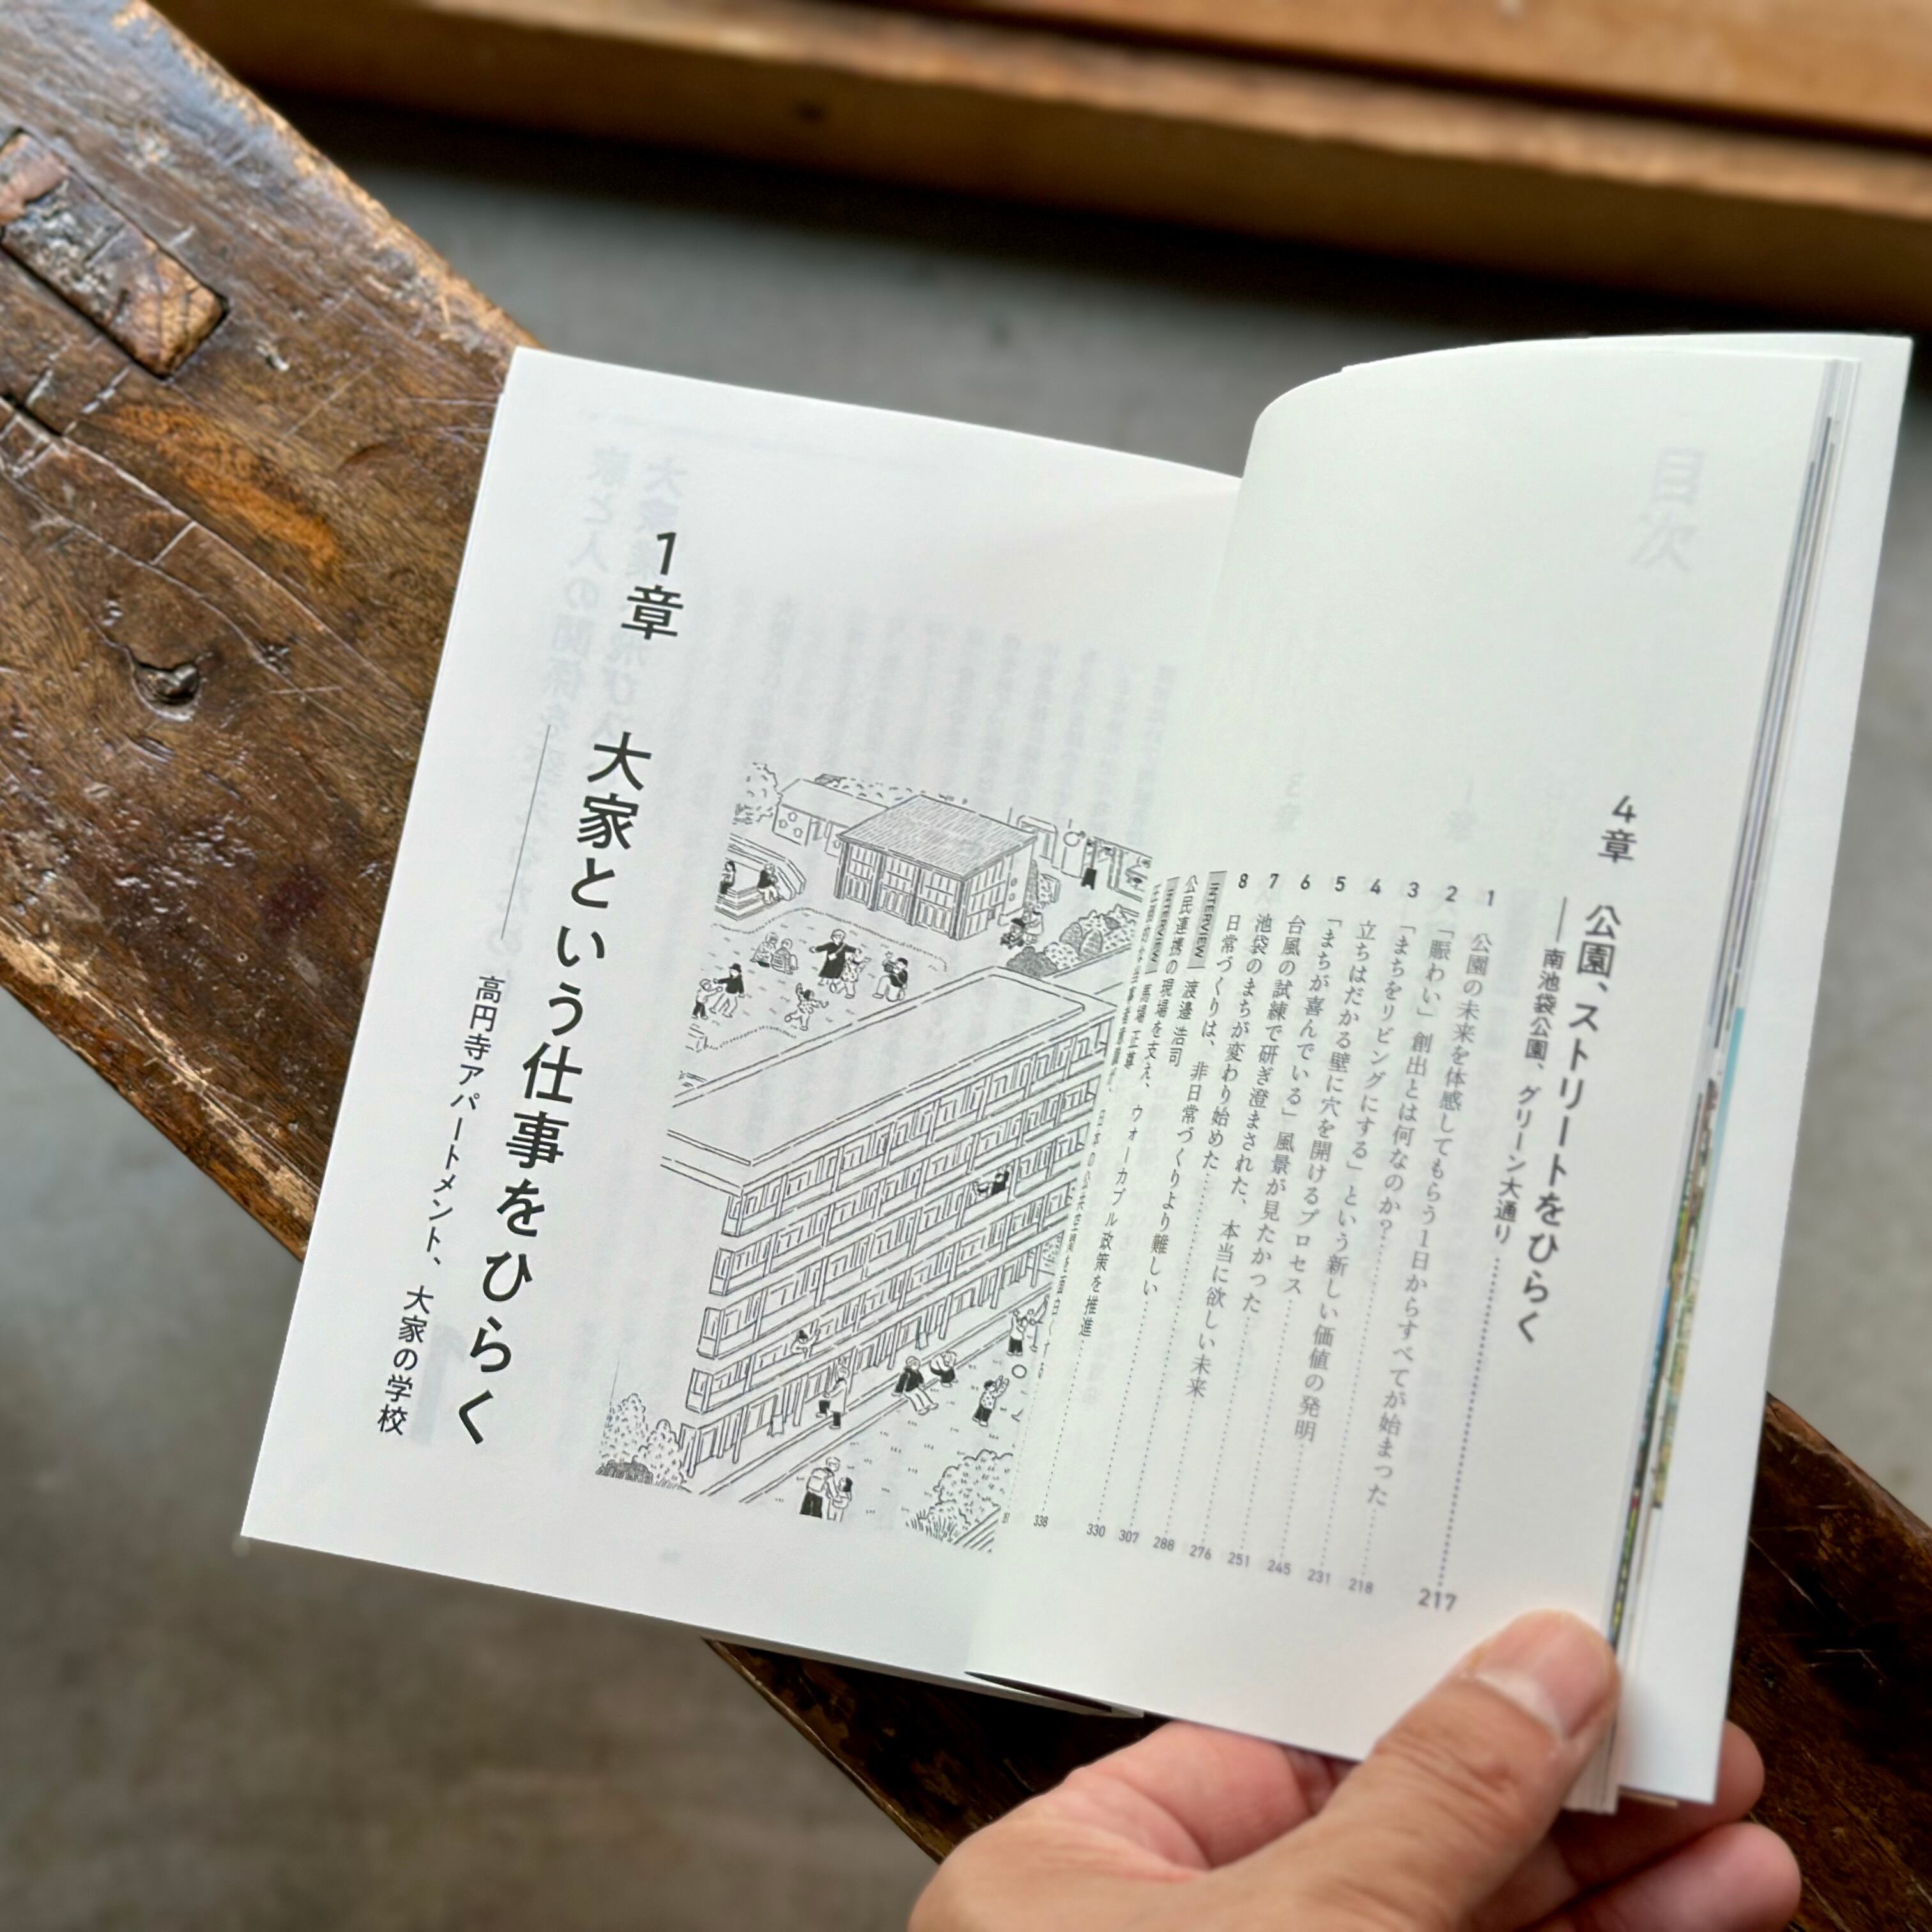 4章 公園、ストリートをひらく
——南池袋公園、グリーン大通り 217
1 公園の未来を体感してもらう1日からすべてが始まった 218
2 「賑わい」創出とは何なのか? 231
3 「まちをリビングにする」という新しい価値の発明 245
4 立ちはだかる壁に穴を開けるプロセス 251
5 「まちが喜んでいる」風景が見たかった 276
6 台風の試練で研ぎ澄まされた、本当に欲しい未来 288
7 池袋のまちが変わり始めた 307
8 日常づくりは、非日常づくりより難しい 330
INTERVIEW 渡邉浩司
公民連携の現場を支え、ウォーカブル政策を推進 338
INTERVIEW 馬場正尊
1章 大家という仕事をひらく
——高円寺アパートメント、大家の学校